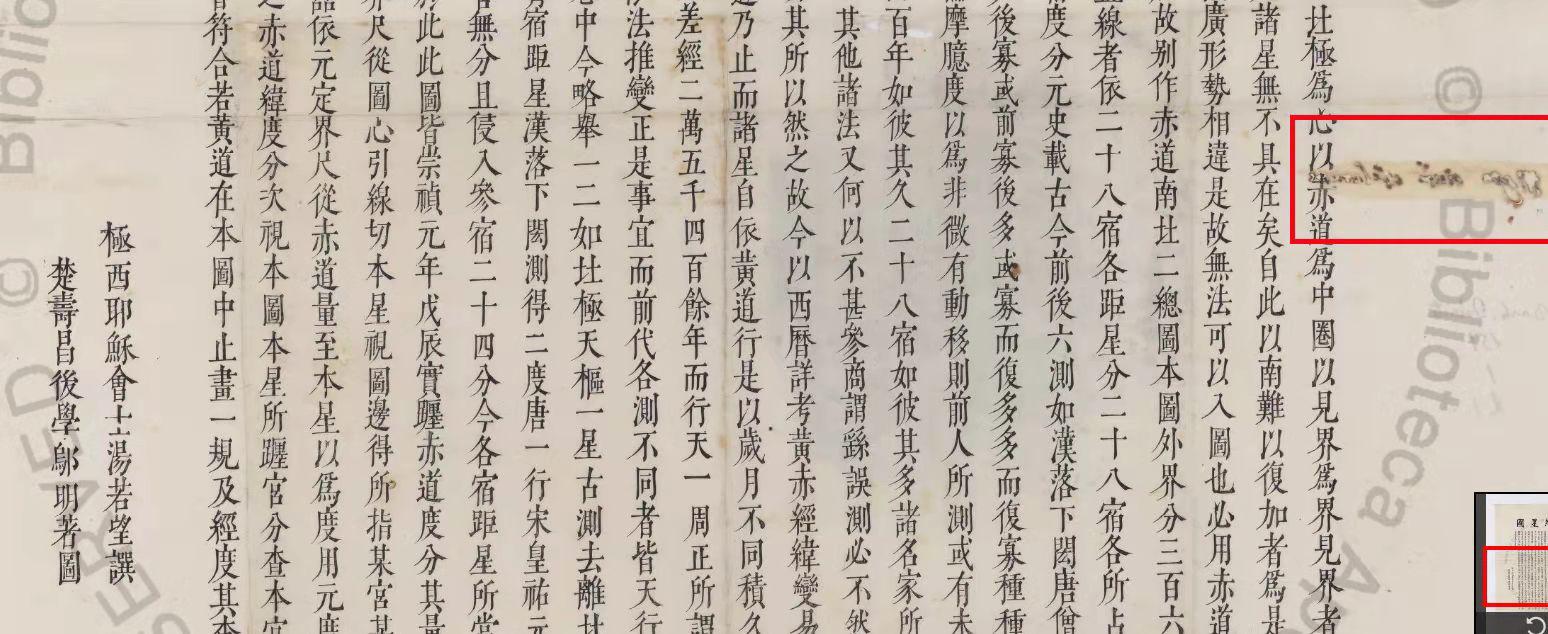 北極爲心以赤道爲中圈以見界爲界見界者
諸星無不具在矣自此以南難以復加者爲是
廣形勢相違是故無法可以入圖也必用赤道
故别作赤道南北二總圖本圖外界分三百六
線者依二十八宿各距星分二十八宿各所占
度分元史載古今前後六測如漢落下閎唐僧
後寡或前寡後多或寡而復多多而復寡種種
摩臆度以爲非微有動移則前人所測或有未
百年如彼其久二十八宿如彼其多諸名家所
其他諸法又何以不甚參商謂繇誤測必不然
其所以然之故今以西曆詳考黄赤經緯變易
乃止而諸星自依黄道行是以歲月不同積久
差經二萬五千四百餘年而行天一周正所謂
法推變正是事宜而前代各測不同者皆天行
中今略舉一二如北極天樞一星古測去離北
宿距星漢落下閎測得二度唐一行宋皇祐元
無分且侵入參宿二十四分今各宿距星所當
此此圖皆崇禎元年戊辰實躔赤道度分其量
界尺從圖心引線切本星視圖邊得所指某宮某
依元定界尺從赤道量至本星以爲度用元度
之赤道緯度分次視本圖本星所躔宮分查本宮
符合若黄道在本圖中止畫一規及經度其本
極西耶穌會士湯若望譔
楚壽昌後學鄔明著圖
© Biblioteca Ap
Biblio